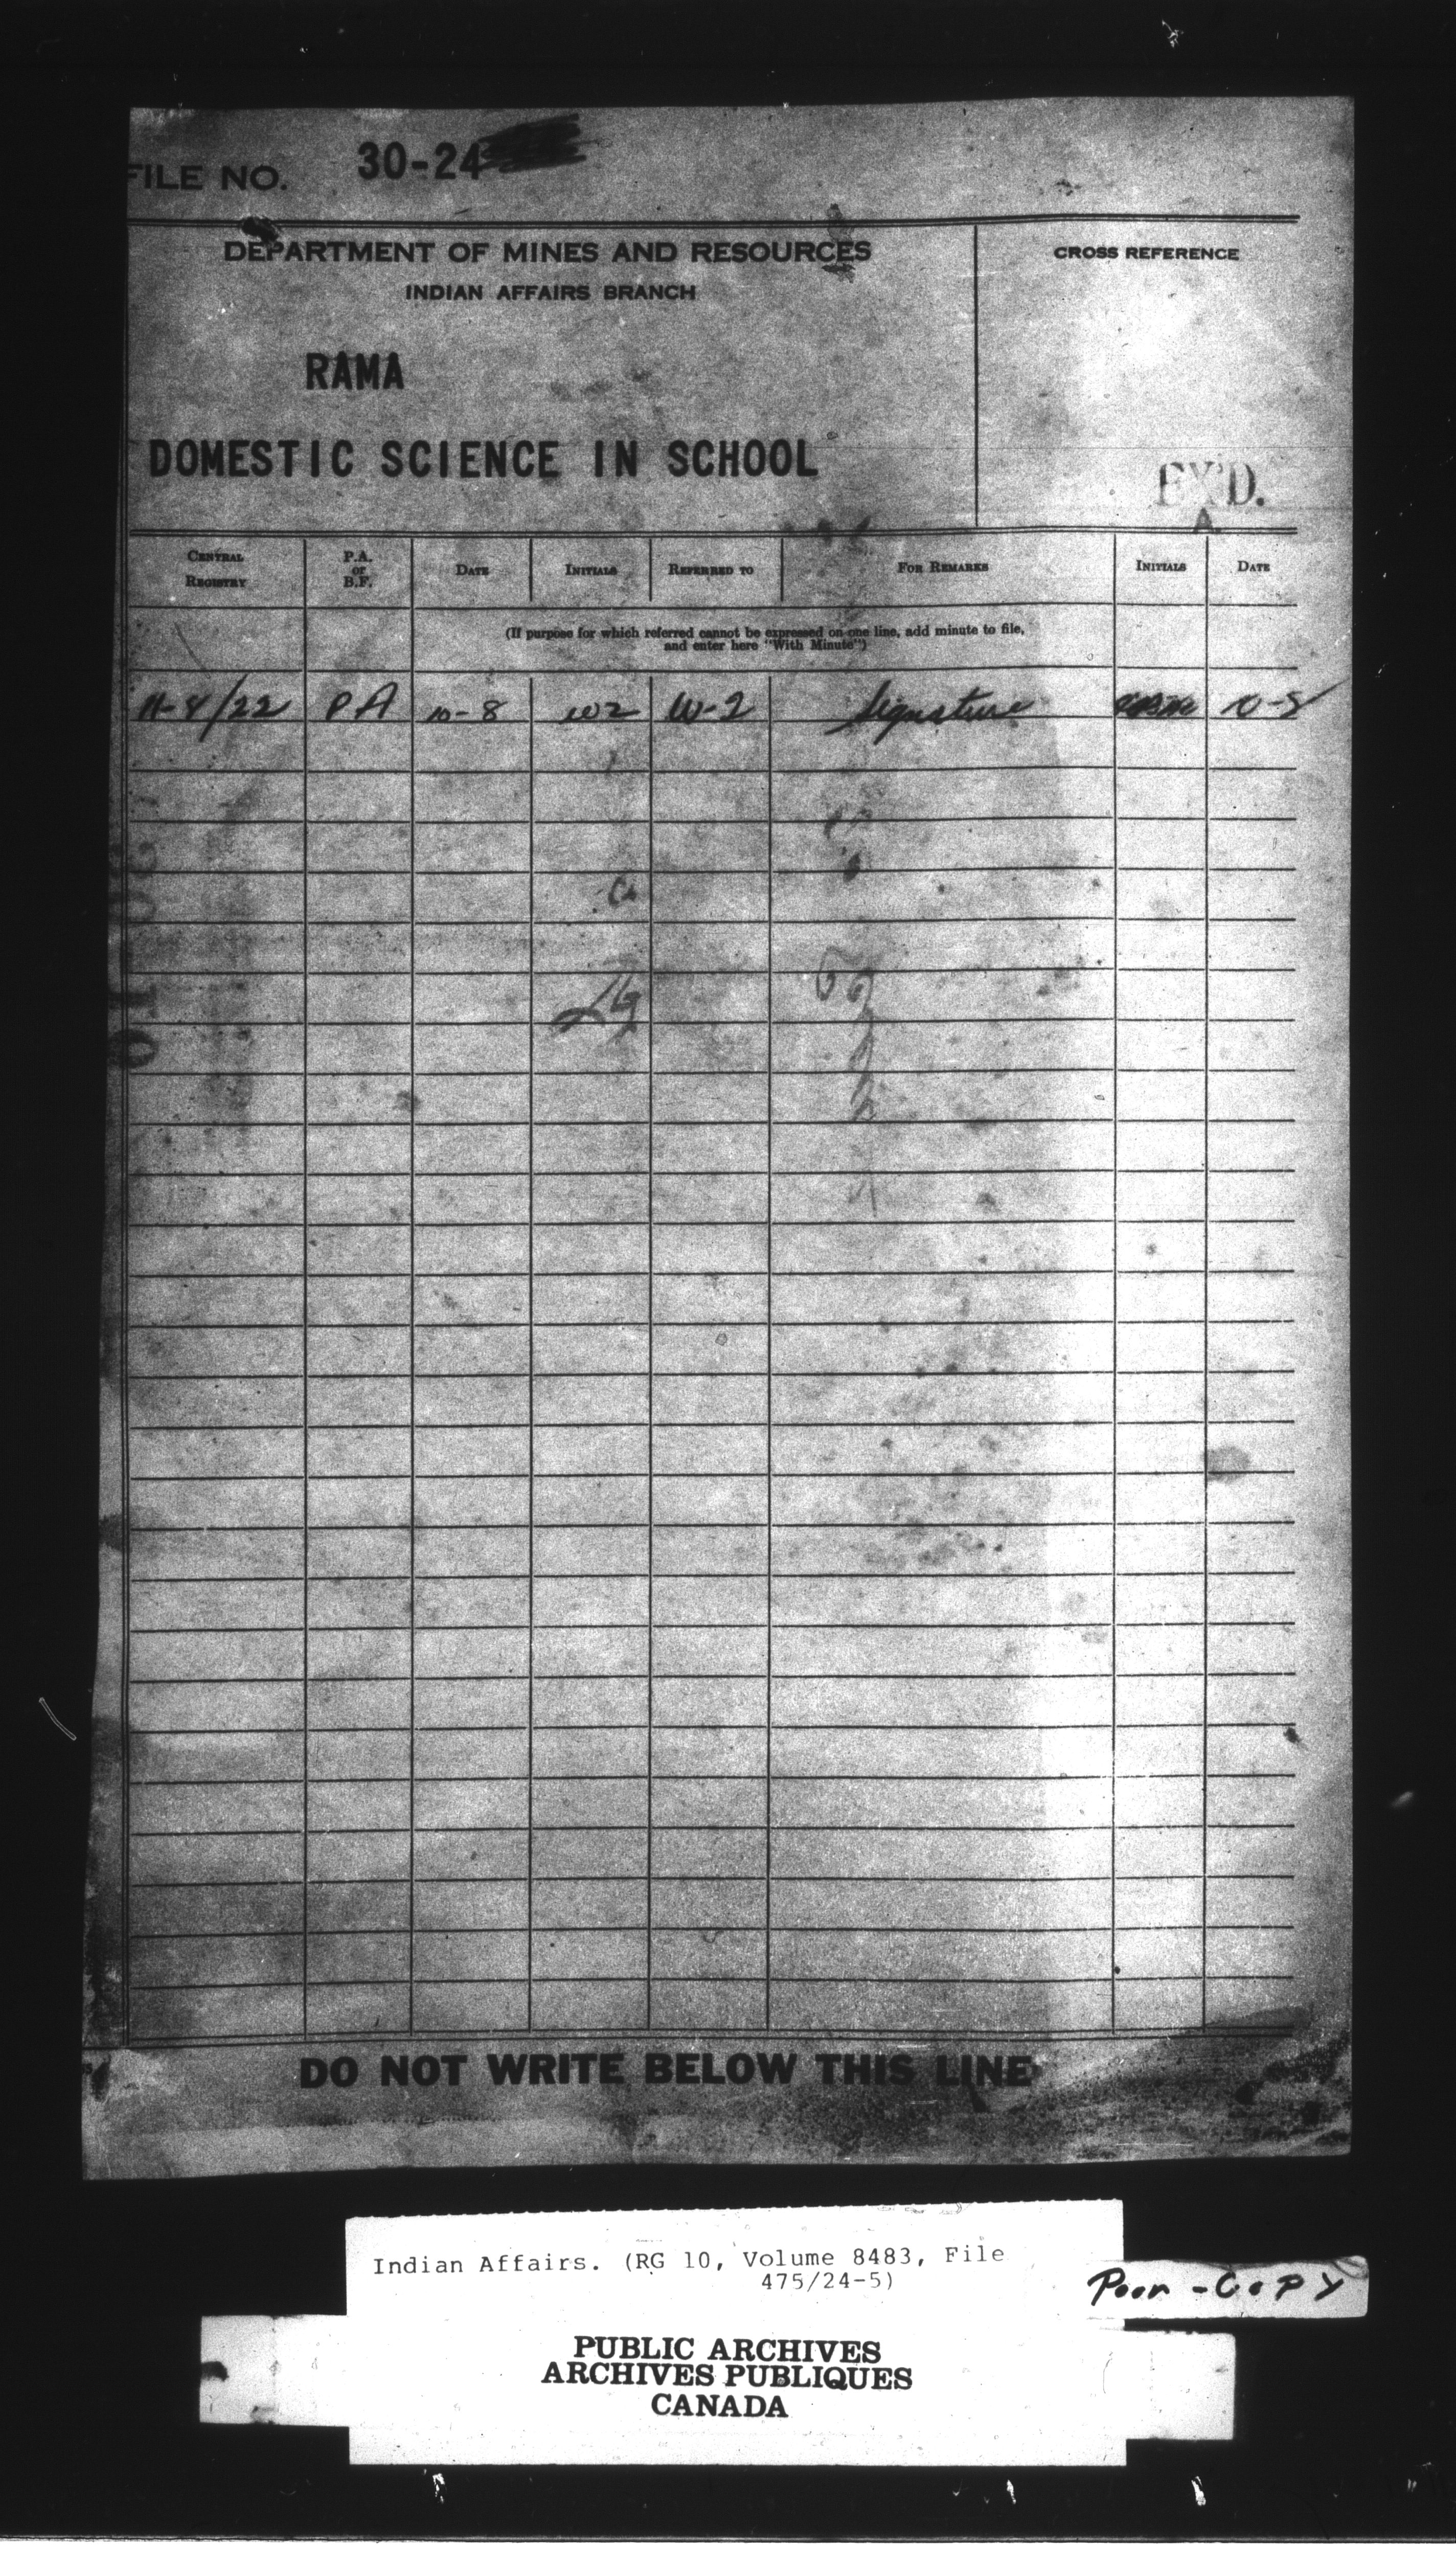 FILE NO. 30-24
DEPARTMENT OF MINES AND RESOURCES
INDIAN AFFAIRS BRANCH
CROSS REFERENCE
RAMA
DOMESTIC SCIENCE IN SCHOOL
EX'D.
A.
CENTRAL REGISTRY P.A. or B.F. DATE INITIALS REFERRED TO FOR REMARKS INITIALS DATE
(If purpose for which referred cannot be expressed on one line, add minute to file,
and enter here "With Minute")
11-8/22 PA 10-8 W2 W-2 Signature 10-8
DO NOT WRITE BELOW THIS LINE
Indian Affairs. (RG 10, Volume 8483, File
475/24-5)
Poor-Copy
PUBLIC ARCHIVES
ARCHIVES PUBLIQUES
CANADA